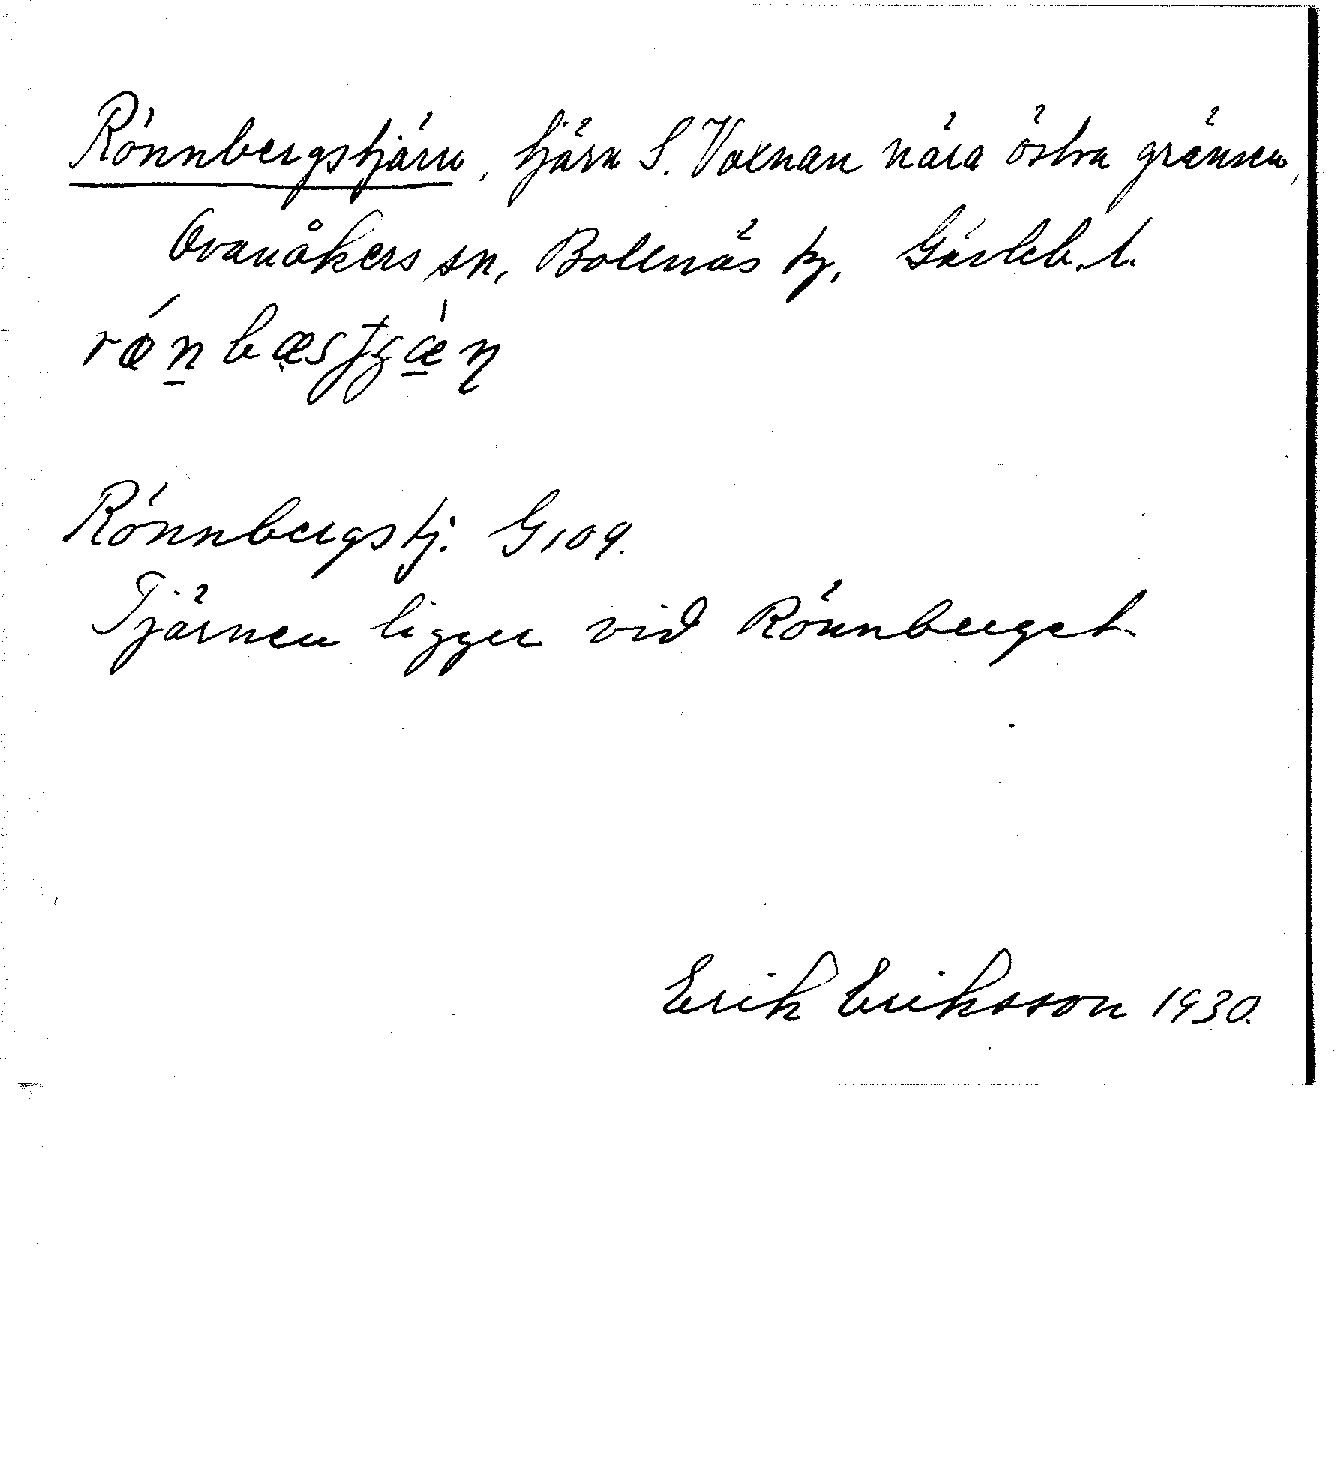 Rönnbergstjärn, tjärn S. Voxnan nära östra gränsen,
Ovanåkers sn, Bollnäs tg, Gävleb. l.
Rönnbergstj. G 109.
Tjärnen ligger vid Rönnberget
Erik Eriksson 1930.